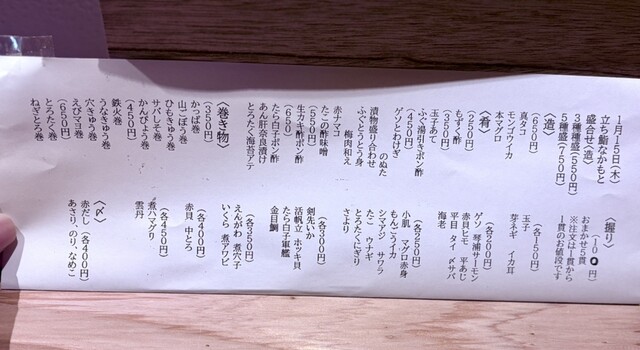 1月15日(木)
立ち鮨なかもと
盛合せ〈造〉
3種盛(550円)
5種盛(750円)
〈造〉
(650円)
真タコ
モンゴウイカ
本マグロ
〈肴〉
(250円)
もずく酢
(350円)
玉子あて
ふぐ湯引きポン酢
(450円)
ゲソとわけぎ
のぬた
ふぐとうとう身
梅肉和え
漬物盛り合わせ
赤ナマコ
(550円)
たこの酢味噌
生カキ酢ポン酢
(650)
たら白子ポン酢
あん肝奈良漬け
とろたく海苔アテ
〈巻き物〉
(350円)
かっぱ巻
山ごぼう巻
ひもきゅう巻
サバしそ巻
かんぴょう巻
(450円)
鉄火巻
うなきゅう巻
穴きゅう巻
えびマヨ巻
(650円)
とろたく巻
ねぎとろ巻
〈握り〉
おまかせ5貫
※注文は1貫から
1貫のお値段です
(各150円)
玉子
芽ネギ イカ耳
(各200円)
ゲソ 琴浦サーモン
赤貝ヒモ 平あじ
平目 タイ 〆サバ
海老
(各250円)
小肌 マグロ赤身
もんごうイカ
シマアジ サワラ
タコ ウナギ
とろたくにぎり
さより
(各300円)
剣先いか
活帆立 ホッキ貝
たら白子軍艦
金目鯛
(各350円)
えんがわ 煮穴子
いくら 煮アワビ
(各400円)
赤貝 中とろ
(各450円)
煮ハマグリ
雲丹
〈〆〉
赤だし(各400円)
あさり、のり、なめこ